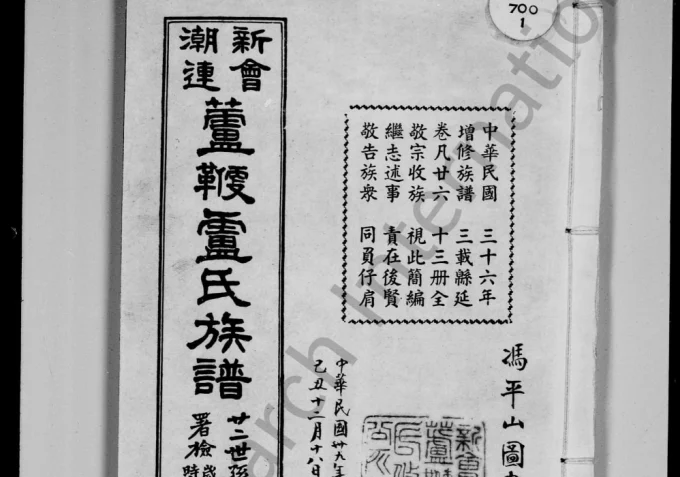 700
1
新會
潮連
蘆鞭盧氏族譜
廿二世孫
署檢
中華民國 三十六年
增修族譜 三載縣延
卷凡廿六 十三册全
敬宗收族 視此簡編
繼志述事 責在後賢
敬告族眾 同負仔肩
馮平山圖
中華民國廿九年
己丑十二月十八日
arch International